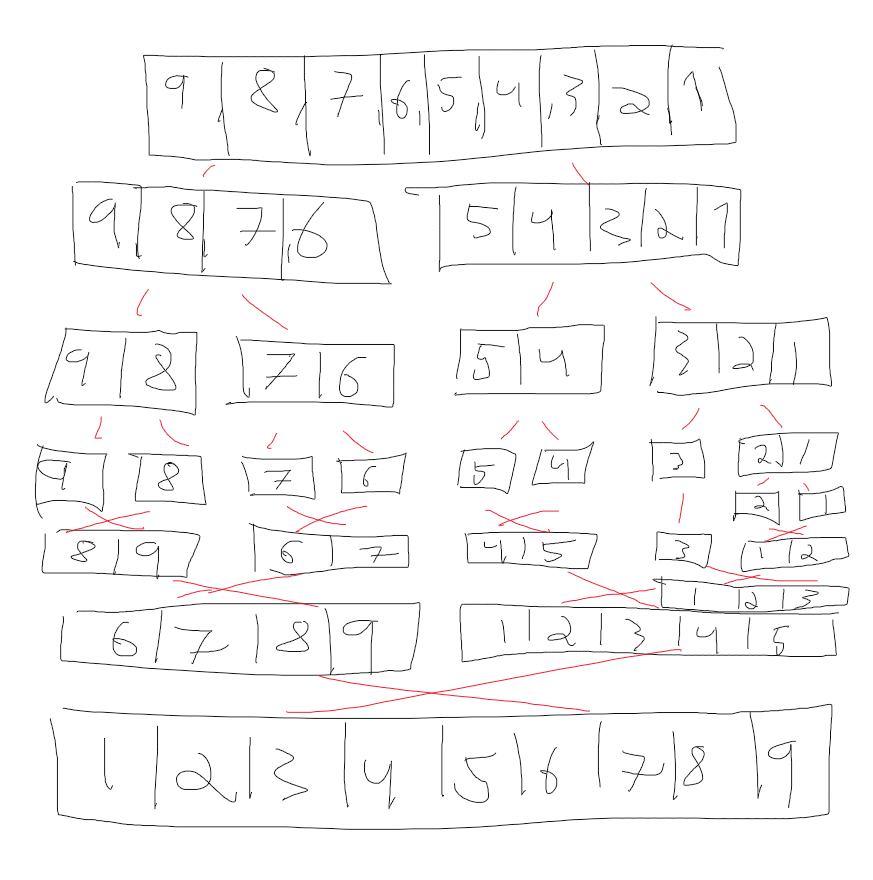 9, 8, 7, 6, 5, 4, 3 2 1
9, 8, 7, 6 5 4 3 2 1
9 8 7 6 5 4 3 2 1
9 8 7 6 5 4 3 2 1
2 1
8 9 6 7 4 5 3 1 2
1 2 3
6 7 8 9 1 2 3 4 5
1 2 3 4 5 6 7 8 9